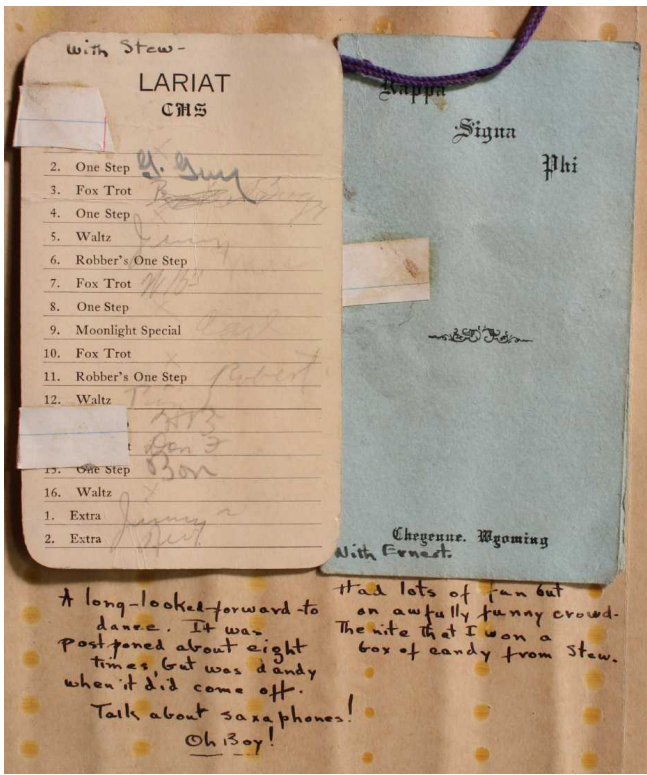 With Stew-
LARIAT
CHS
2. One Step G. Guy
3. Fox Trot
4. One Step
5. Waltz Jimmy
6. Robber's One Step
7. Fox Trot
8. One Step
9. Moonlight Special Carl
10. Fox Trot
11. Robber's One Step Robert
12. Waltz
Don F
15. One Step Bon
16. Waltz
1. Extra Jimmy
2. Extra
Kappa
Sigma
Phi
Cheyenne. Wyoming
With Ernest.
A long-looked-forward-to
dance. It was
postponed about eight
times, but was dandy
when it did come off.
Talk about saxaphones!
Oh Boy!
Had lots of fun but
an awfully funny crowd-
The nite that I won a
box of candy from Stew.